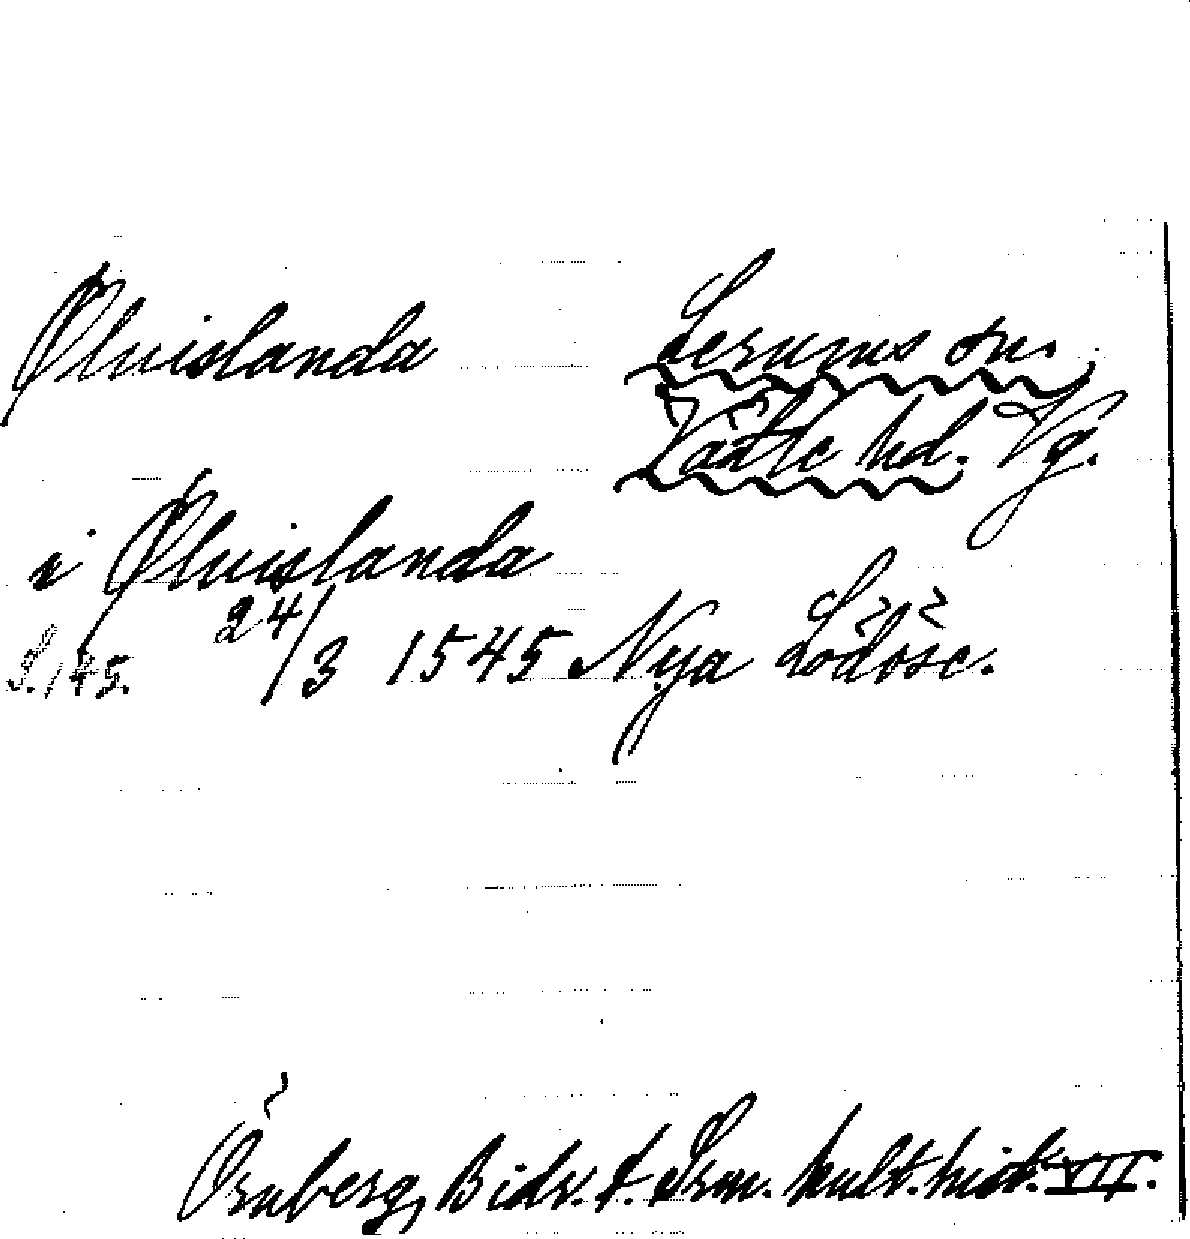 Øluislanda Lerums sn.
Vättle hd. Vg.
i Øluislanda
S. 145. 24/3 1545 Nya Lödöse.
Örnberg, Bidr. t. Srm. kult. hist. VII.